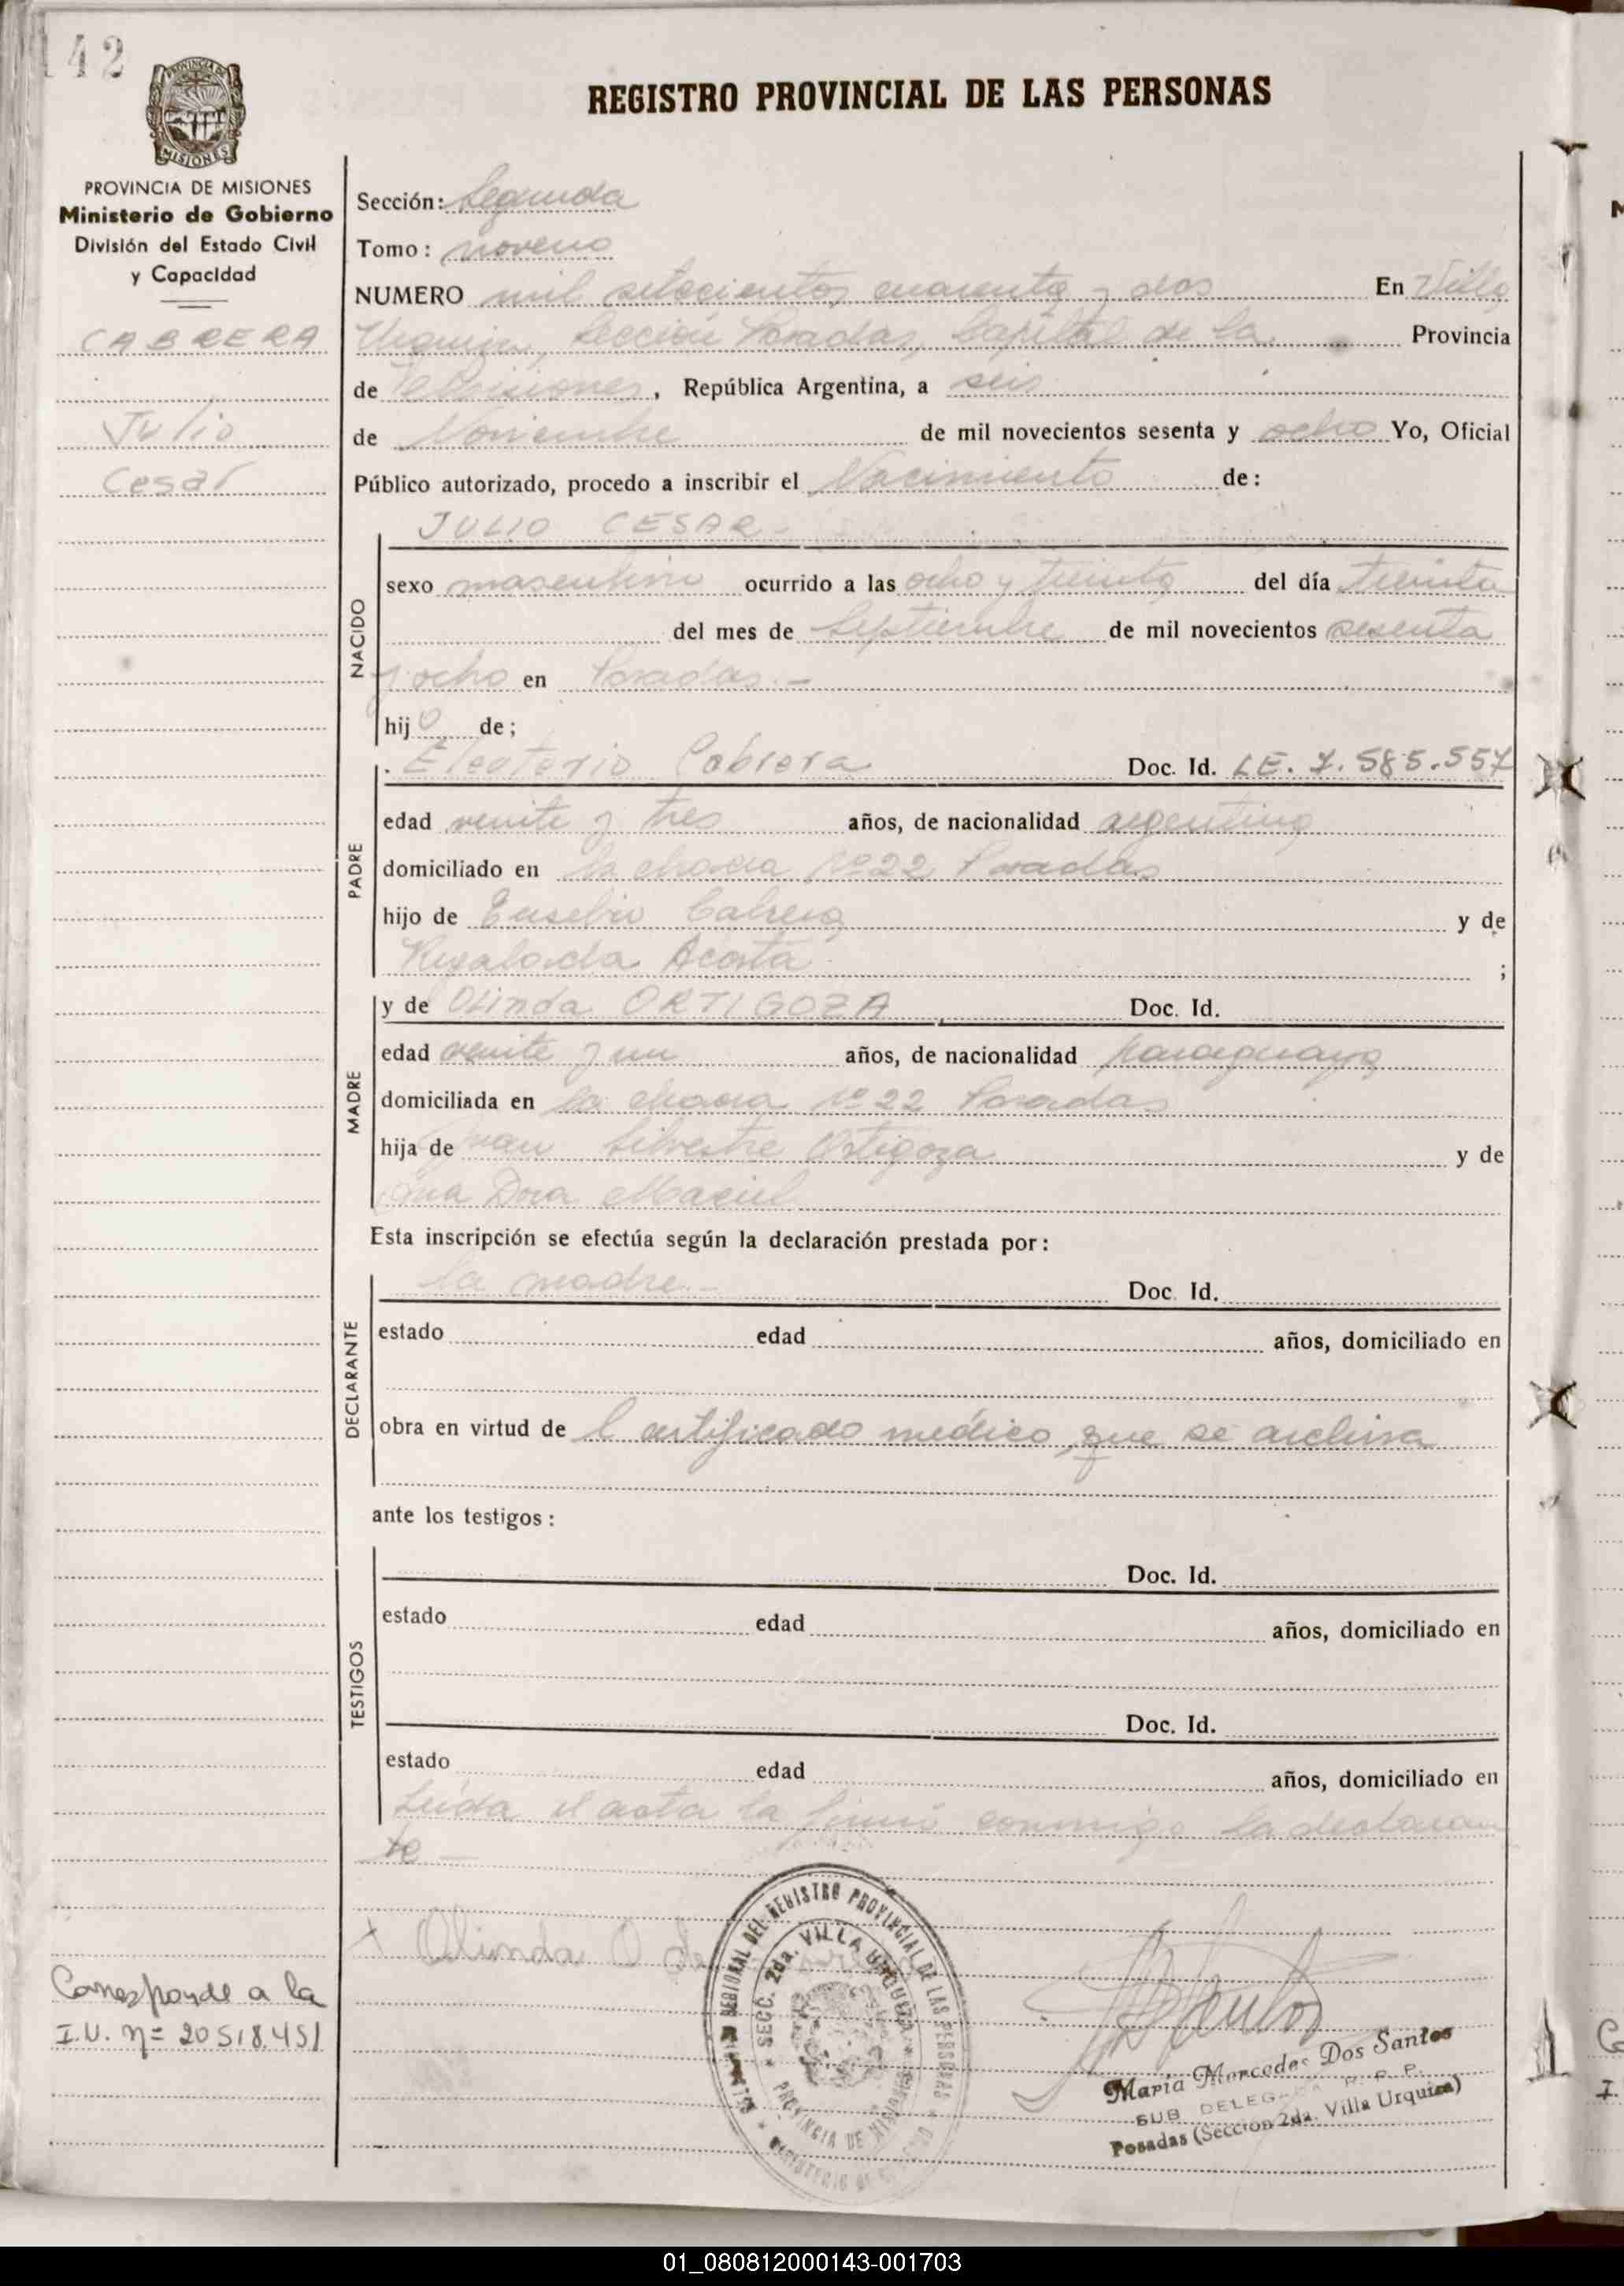 142
REGISTRO PROVINCIAL DE LAS PERSONAS
PROVINCIA DE MISIONES
MISIONES
PROVINCIA DE MISIONES
Ministerio de Gobierno
División del Estado Civil
y Capacidad
CABRERA
Julio
Cesar
Sección: Segunda
Tomo: noveno
NUMERO mil setecientos cuarenta y dos En Villa
Urquiza, Sección Posadas, Capital de la Provincia
de Misiones, República Argentina, a seis
de Noviembre de mil novecientos sesenta y ocho Yo, Oficial
Público autorizado, procedo a inscribir el Nacimiento de:
JULIO CESAR.-
NACIDO
sexo masculino ocurrido a las ocho y treinta del día treinta
del mes de Septiembre de mil novecientos sesenta
y ocho en Posadas.-
hijo de;
PADRE
Eleoterio Cabrera Doc. Id. LE. 7.585.557
edad veinte y tres años, de nacionalidad argentina
domiciliado en la chacra Nº 22 Posadas
hijo de Eusebio Cabrera y de
Regalada Acosta ;
MADRE
y de Olinda ORTIGOZA Doc. Id.
edad veinte y un años, de nacionalidad paraguaya
domiciliada en la chacra Nº 22 Posadas
hija de Juan Silvestre Ortigoza y de
Dora Maciel
Esta inscripción se efectúa según la declaración prestada por:
DECLARANTE
la madre.- Doc. Id.
estado edad años, domiciliado en
obra en virtud de l certificado médico que se archiva
ante los testigos:
TESTIGOS
Doc. Id.
estado edad años, domiciliado en
Doc. Id.
estado edad años, domiciliado en
Leída el acta la firmó conmigo la declaran
te -
+ Olinda O de
REGIONAL DEL REGISTRO PROVINCIAL DE LAS PERSONAS
SECC. 2da. VILLA URQUIZA
PROVINCIA DE MISIONES
Maria Mercedes Dos Santos
SUB DELEGADA R. P. P.
Posadas (Sección 2da. Villa Urquiza)
Corresponde a la
I.U. nº 20518.451
01_080812000143-001703